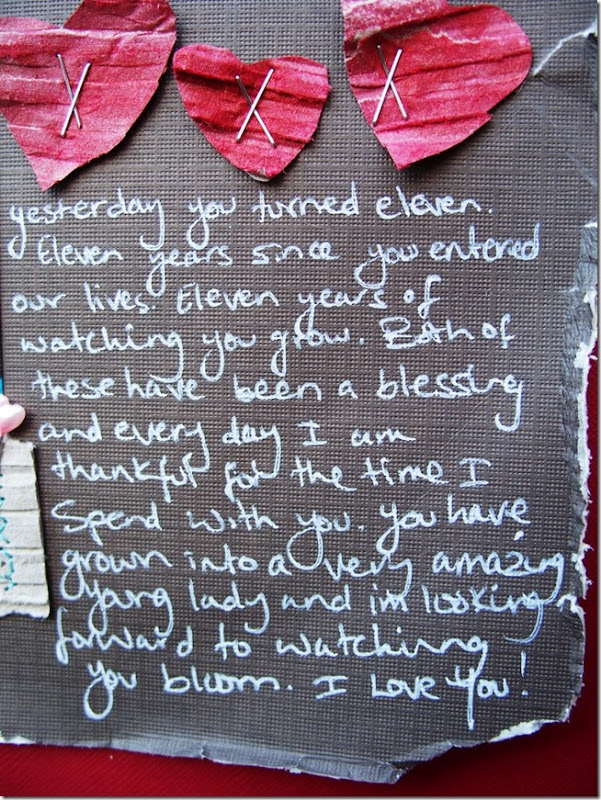 yesterday you turned eleven.
Eleven years since you entered
our lives. Eleven years of
watching you grow. Both of
these have been a blessing
and every day I am
thankful for the time I
spend with you. You have
grown into a very amazing
young lady and im looking
forward to watching
you bloom. I Love You!